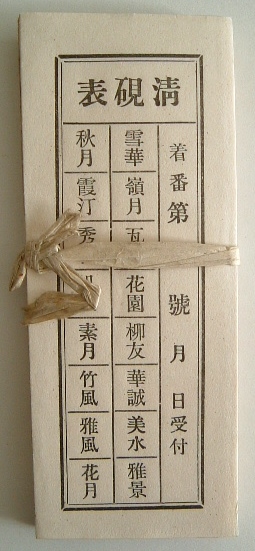 淸硯表
着番第 號 月 日受付
雪華
嶺月
瓦
花園
柳友
華誠
美水
雅景
秋月
霞汀
秀
素月
竹風
雅風
花月